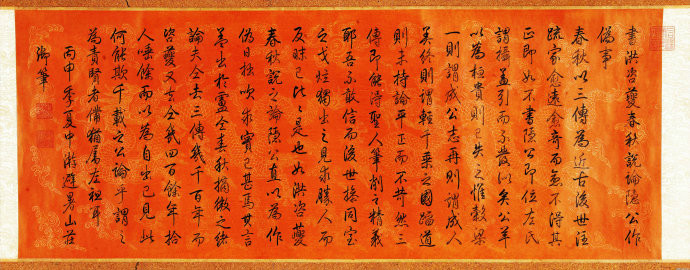 書洪咨夔春秋說論隱公作
偽事
春秋以三傳為近古後世注
疏家愈遠愈奇而愈不得其
正即如不書隱公即位左氏
謂攝蓋引而不發以矣公羊
以為桓貴則已失之惟穀梁
一則謂成公志再則謂成人
美終則謂輕千乗之國蹈道
則未持論平正而不苛然三
傳即能得聖人筆削之精義
耶吾不敢信而後世操同室
之戈炫獨出之見求勝人而
反昧已比比是也如洪咨夔
春秋說之論隱公直以為作
偽日拙吹求實已甚焉其言
蓋出於盧仝春秋摘微之緒
論夫仝去三傳幾千百年而
咨夔又去仝幾四百餘年拾
人唾餘而以為自出己見此
何能欺千載之公論乎謂之
為責賢者備猶屬左袒耳
丙申季夏中澣避暑山莊
御筆